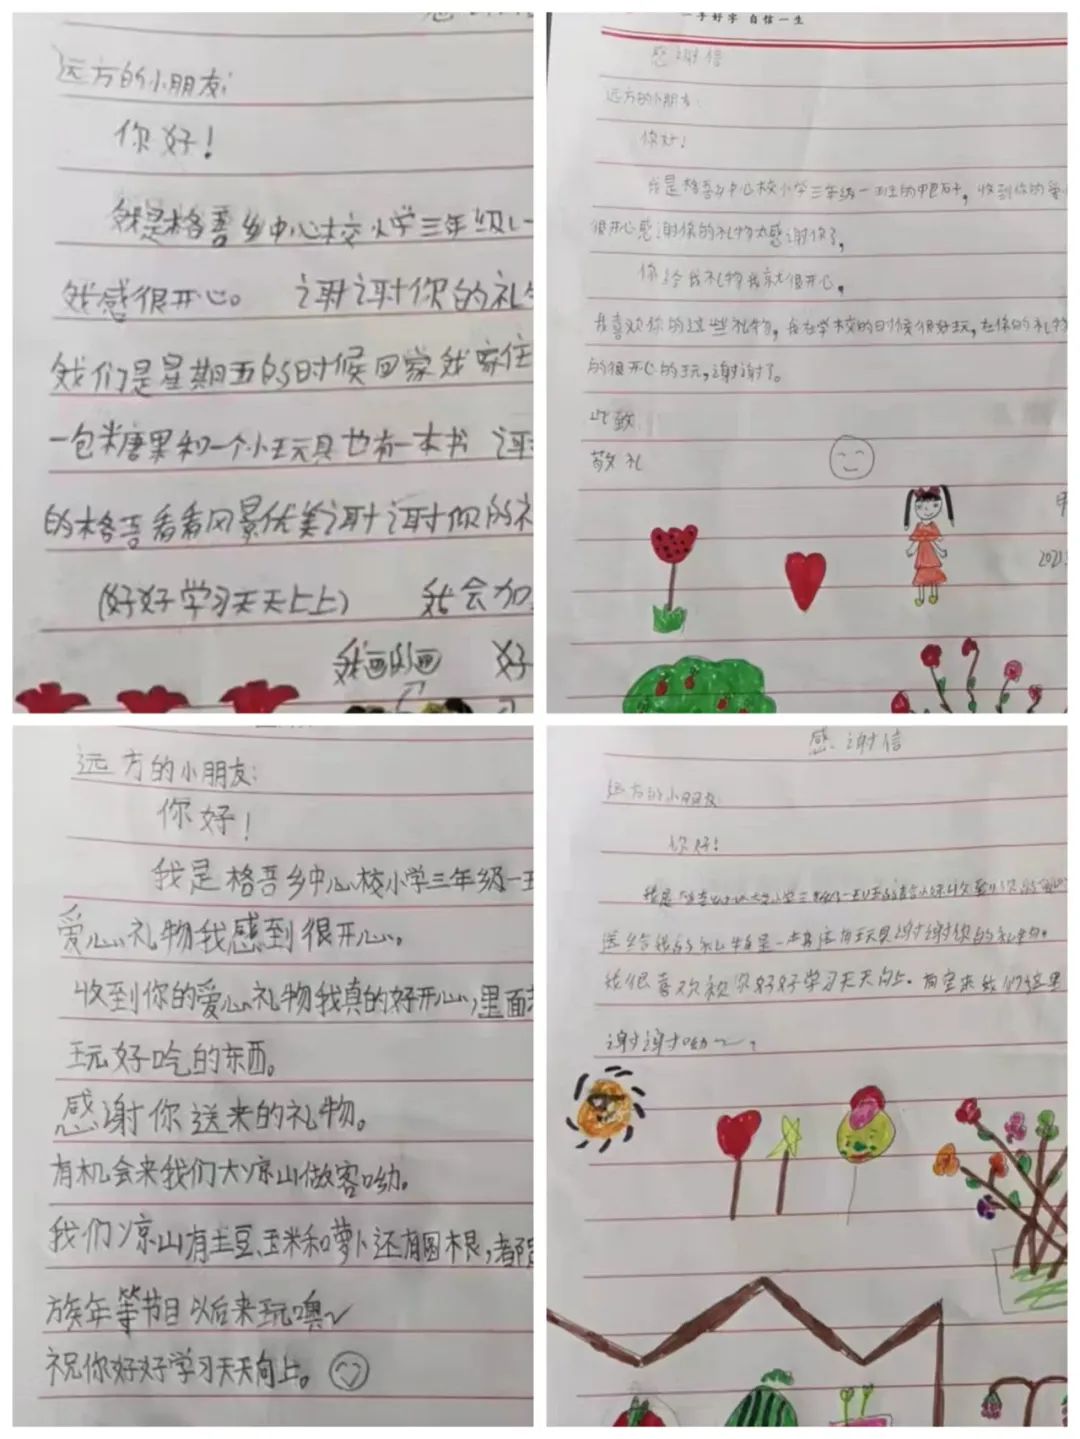 远方的小朋友:
你好!
我是格吾乡中心校小学三年级一
我感很开心。 谢谢你的礼
我们是星期五的时候回家我家住
一包糖果和一个小玩具也有一本书
的格吾看看风景优美谢谢你的礼
(好好学习天天上上) 我会加
我画的画 好
一手好字 自信一生
感谢信
远方的小朋友:
你好!
我是格吾乡中心校小学三年级一班的 收到你的爱
很开心感谢你的礼物太感谢你了,
你给我礼物我就很开心。
我喜欢你的这些礼物,我在学校的时候很好玩,在你的礼物
的很开心的玩,谢谢了。
此致
敬礼
2021.
远方的小朋友:
你好!
我是格吾乡中心校小学三年级一班
爱心礼物我感到很开心。
收到你的爱心礼物我真的好开心,里面
玩好吃的东西。
感谢你送来的礼物。
有机会来我们大凉山做客呦。
我们凉山有土豆、玉米和萝卜还有圆根,都
族年等节目以后来玩噢~
祝你好好学习天天向上。
感谢信
远方的小朋友:
你好!
我是 小学三年级一班 收到你的
送给我的礼物是一本书 玩具谢谢你的礼物。
我很喜欢祝你好好学习天天向上。 来我们这里
谢谢呦~。